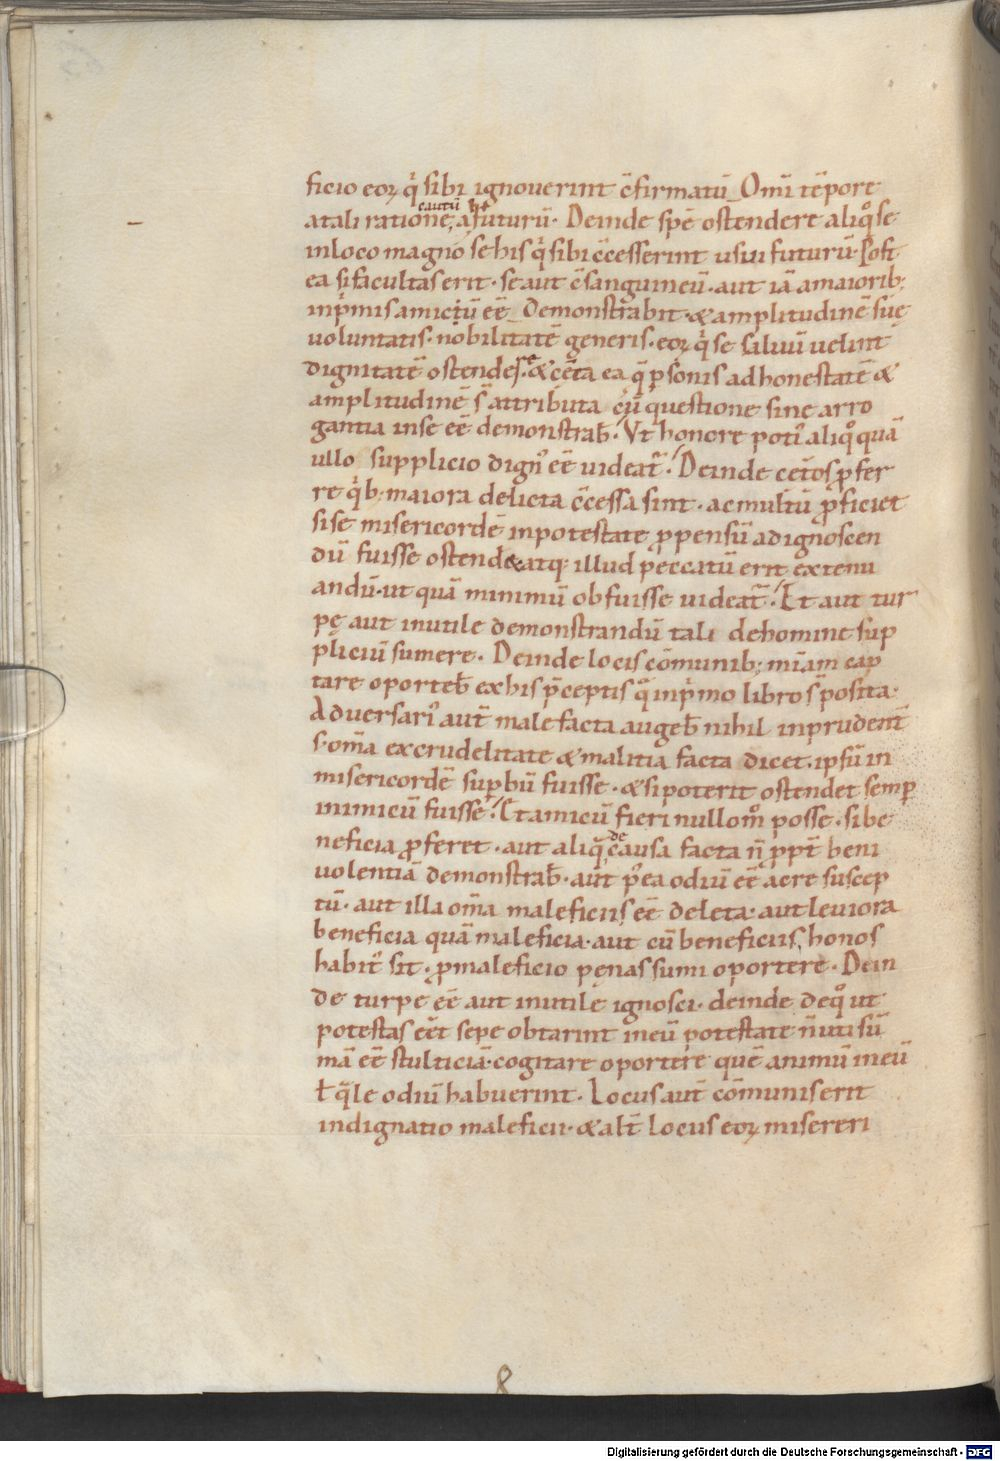 ficio eoꝝ q̇ sibi ignouerint c̄firmatū Omī tēpore
cautū h̄
atali ratione, afuturū· Deinde spē ostendere aliq̊ se
inloco magno se his q̇ sibi c̄cesserint usui futurū· Post
ea si facultas erit· se aut c̄sanguineū· aut iā amaiorib;
inṗmis amicū eē Demonstrabit· & amplitudinē suę
voluntatis· nobilitatē generis· eoꝝ q̇ se saluū uelint
dignitatē ostende· se & cēta ea q̄ ꝑsonis ad honestatē &
amplitudinē s̄ attributa cū questione sine arro
gantia inse eē demonstrab̄· Vt honore potiꝰ aliq̊ quā
ullo supplicio dignꝰ eē uideat̄· Deinde cet̄os ꝓfer
re q̇b; maiora delicta c̄cessa sint· ac multū ꝓficiet
si se misericordē inpotestate ꝓpensū ad ignoscen
dū fuisse ostend& atq; illud peccatū erit extenu
andū· ut quā minimū obfuisse uideat̄· Et aut tur
pę aut inutile demonstrandū tali dehomine sup
pliciū sumere· Deinde locis cōmunib; mīam cap
tare oporteb̄ ex his p̄ceptis q̄ inṗmo libro s̄ posita·
Aduersariꝰ aut̄ malefacta augeb̄ nihil inprudent̄
s· om̄a excrudelitate & malitia facta dicet· ipsū in
misericordē suꝑbū fuisse· & si poterit ostendet semꝑ
inimicū fuisse· Et amicū fieri nullo m̊ posse· si be
neficia ꝓferet· aut aliq̄ de causa facta n̄ ꝓpt̄ beni
uolentiā demonstrab̄· aut p̊ea odiū eē acre suscep
tū· aut illa om̄a maleficiis eē deleta· aut leuiora
beneficia quā maleficia· aut cū beneficiis honos
habitꝰ sit· ꝓmaleficio pęnas sumi oportere· Dein
de turpe eē aut inutile ignosci· deinde deq̊ ut
potestas eēt sepe obtarint ineū potestate n̄ uti sū
mā eē stulticiā· cogitare oportere quē animū ineū
ł q̄le odiū habuerint· Locus aut̄ cōmunis erit
indignatio maleficii· & alt̄ locus eoꝝ misereri
8
Digitalisierung gefördert durch die Deutsche Forschungsgemeinschaft - DFG